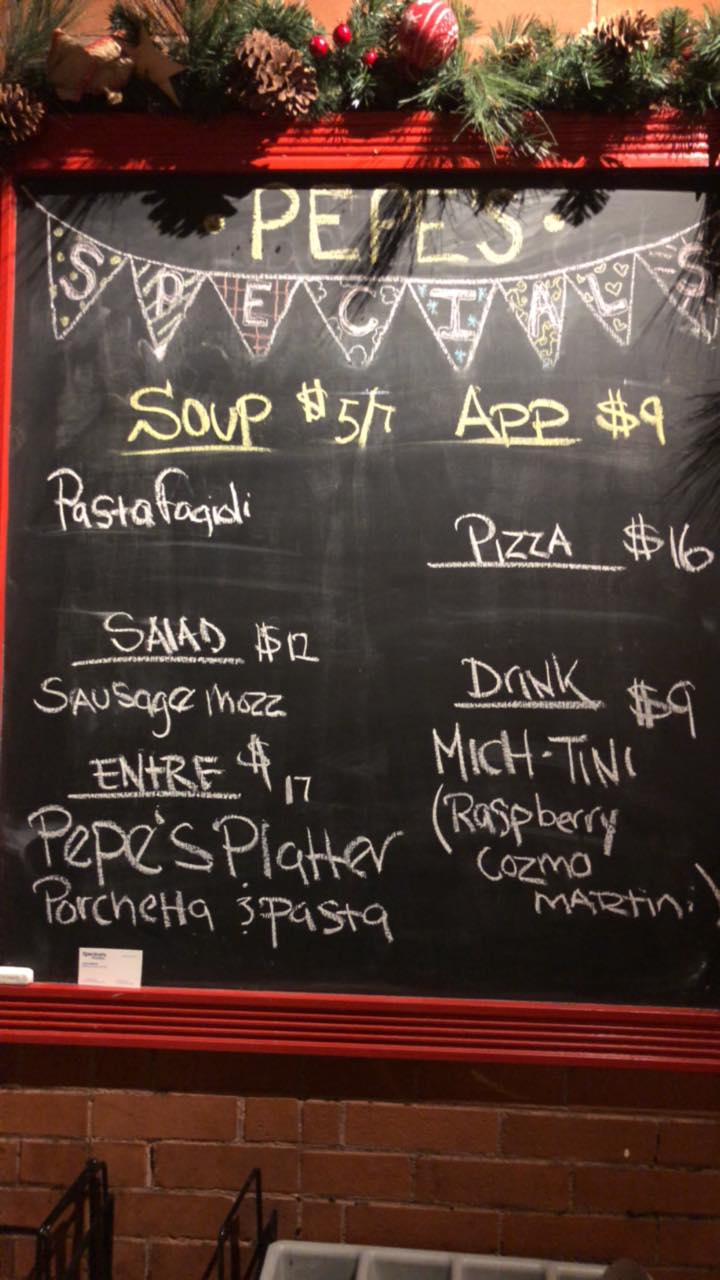 PEPE'S
SPECIALS
SOUP $5/7
Pasta fagioli
SALAD $12
SAUSAGE MOZZ
ENTRE $17
Pepe's Platter
Porchetta & Pasta
APP $9
PIZZA $16
DRINK $9
MICH-TINI
(Raspberry
COZMO
MARTINI)